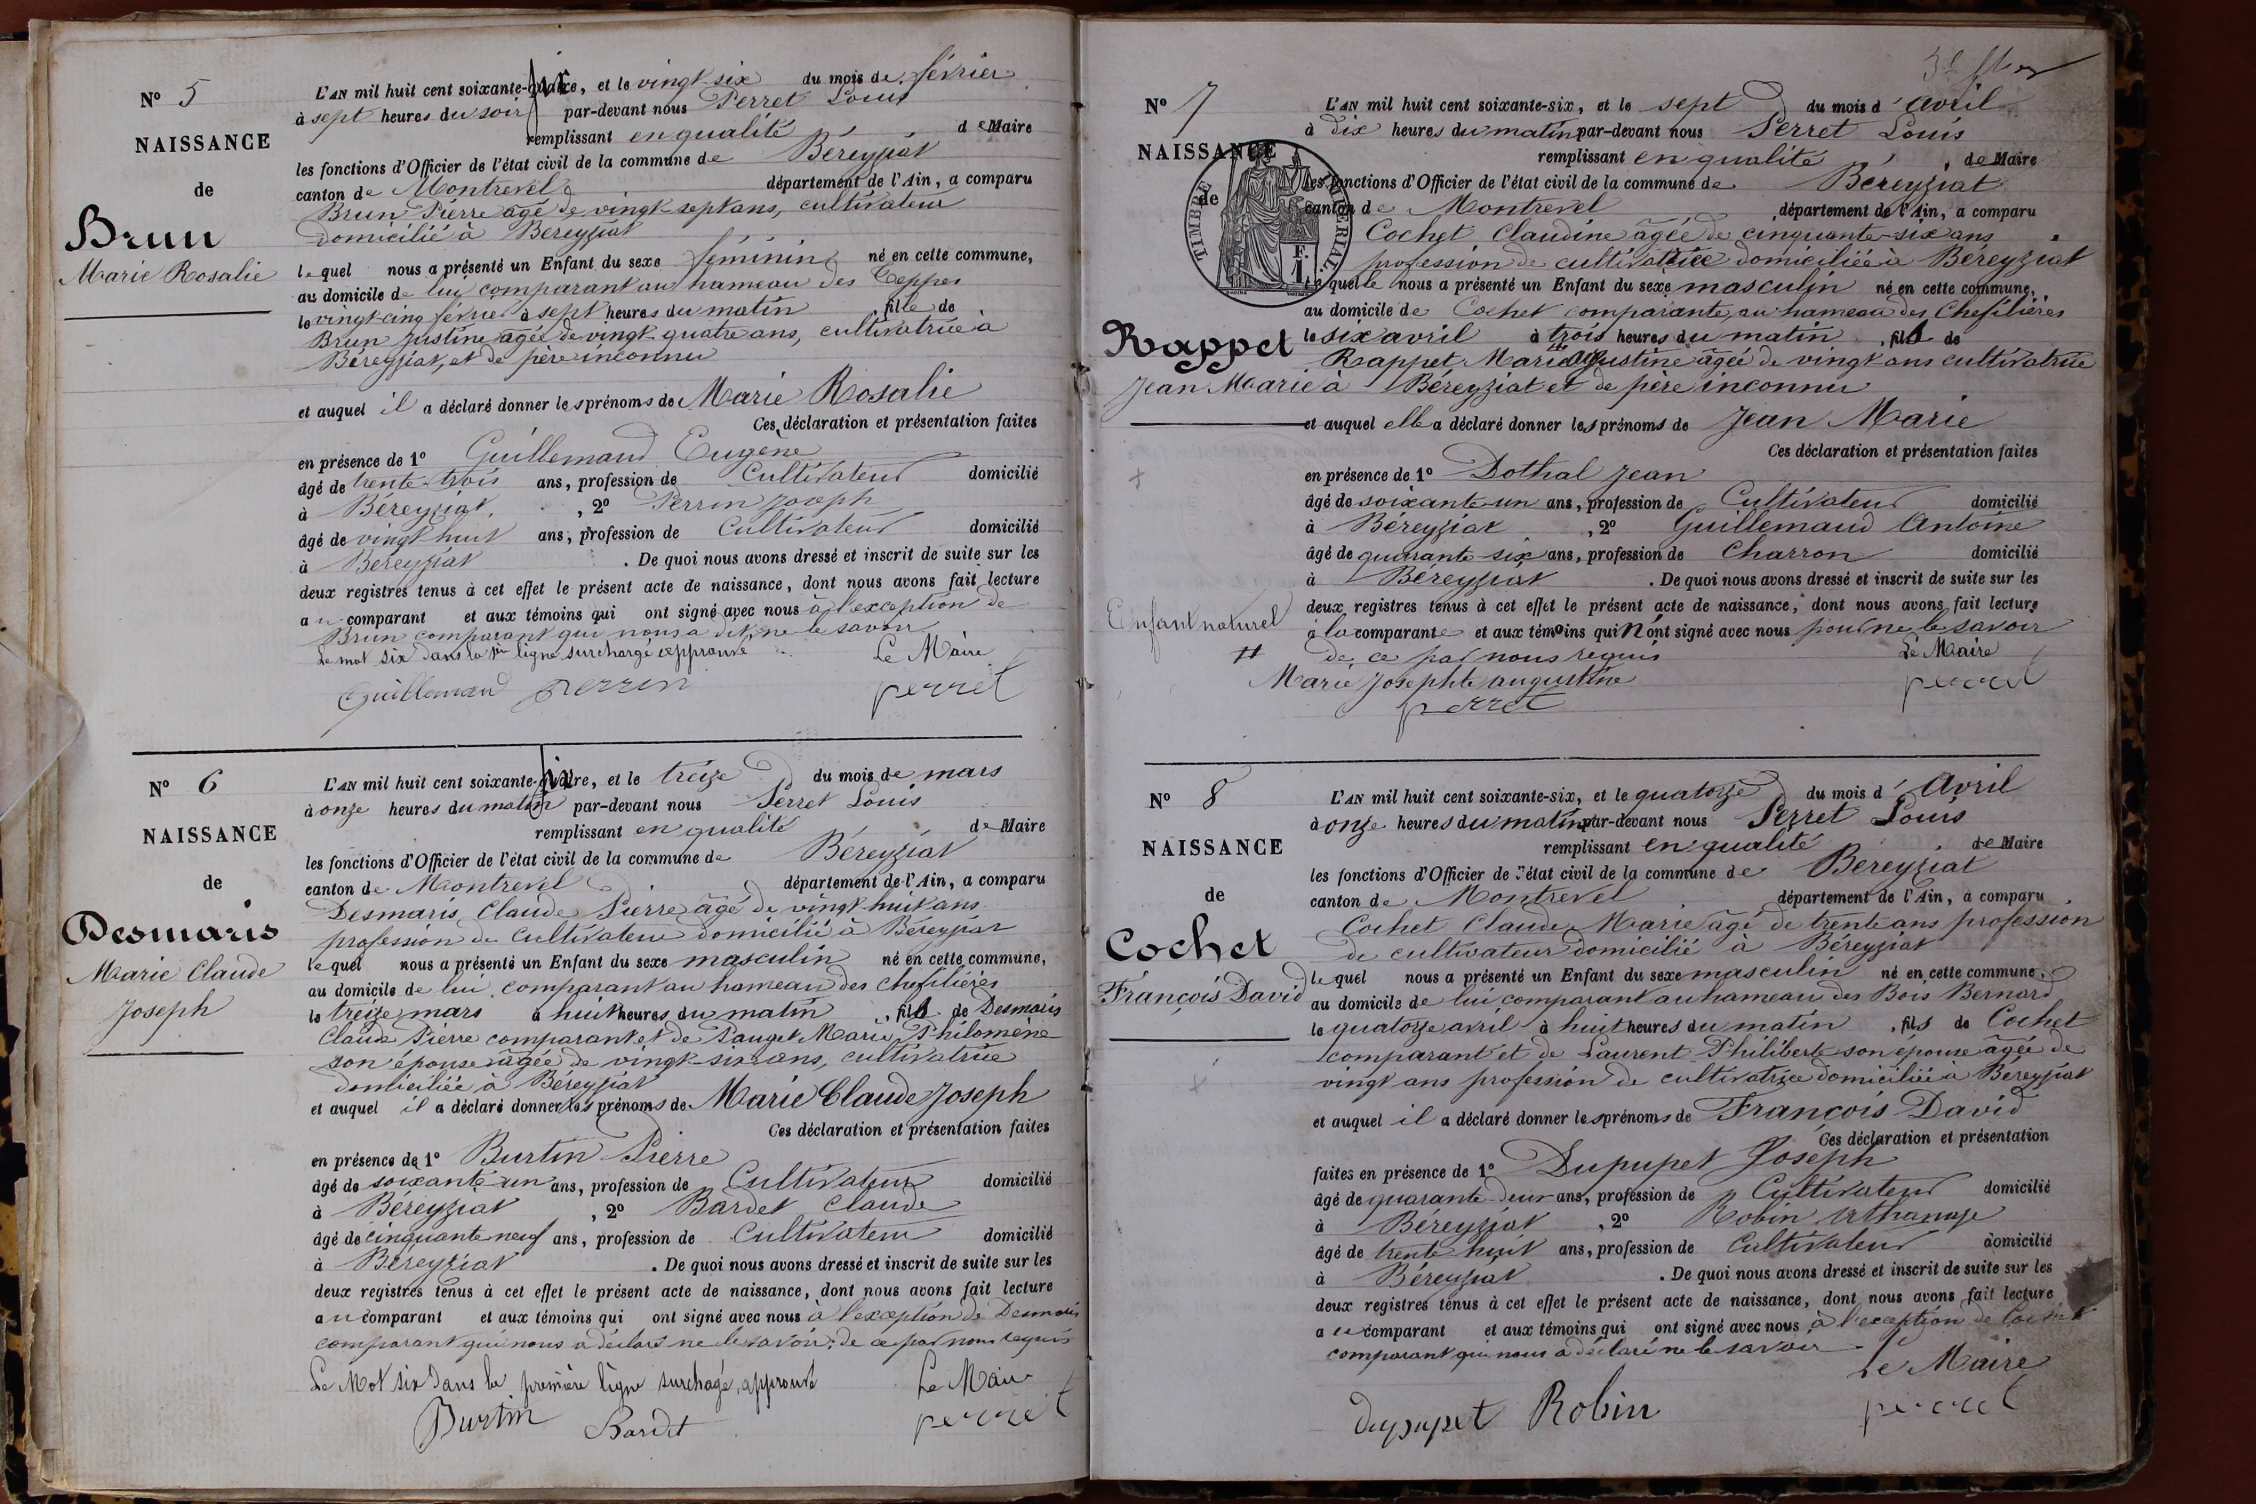 N° 5
NAISSANCE
de
Brun
Marie Rosalie
L'AN mil huit cent soixante-six, et le vingt-six du mois de février
à sept heures du soir par-devant nous Perret Louis
remplissant en qualité de Maire
les fonctions d'Officier de l'état civil de la commune de Béreyziat
canton de Montrevel département de l'Ain, a comparu
Brun Pierre âgé de vingt-sept ans, cultivateur
domicilié à Béreyziat
lequel nous a présenté un Enfant du sexe féminin né en cette commune,
au domicile de lui comparant au hameau des Teppes
le vingt cinq février à sept heures du matin, fille de
Brun Justine âgée de vingt-quatre ans, cultivatrice à
Béreyziat, et de père inconnu
et auquel il a déclaré donner les prénoms de Marie Rosalie
Ces déclaration et présentation faites
en présence de 1° Guillemaud Eugène
âgé de trente-trois ans, profession de Cultivateur domicilié
à Béreyziat, 2° Perrin Joseph
âgé de vingt huit ans, profession de Cultivateur domicilié
à Béreyziat. De quoi nous avons dressé et inscrit de suite sur les
deux registres tenus à cet effet le présent acte de naissance, dont nous avons fait lecture
au comparant et aux témoins qui ont signé avec nous à l'exception de
Brun comparant qui nous a dit ne le savoir
Le mot six dans la 1ère ligne surchargé approuvé Le Maire
Guillemaud perrin perret
N° 6
NAISSANCE
de
Desmaris
Marie Claude
Joseph
L'AN mil huit cent soixante-six, et le treize du mois de mars
à onze heures du matin par-devant nous Perret Louis
remplissant en qualité de Maire
les fonctions d'Officier de l'état civil de la commune de Béreyziat
canton de Montrevel département de l'Ain, a comparu
Desmaris Claude Pierre âgé de vingt-huit ans
profession de cultivateur domicilié à Béreyziat
lequel nous a présenté un Enfant du sexe masculin né en cette commune,
au domicile de lui comparant au hameau des Chefilières
le treize mars à huit heures du matin, fils de Desmaris
Claude Pierre comparant et de Pauget Marie Philomène
son épouse âgée de vingt-six ans, cultivatrice
domiciliée à Béreyziat
et auquel il a déclaré donner les prénoms de Marie Claude Joseph
Ces déclaration et présentation faites
en présence de 1° Burtin Pierre
âgé de soixante-un ans, profession de Cultivateur domicilié
à Béreyziat, 2° Bardet Claude
âgé de cinquante neuf ans, profession de Cultivateur domicilié
à Béreyziat. De quoi nous avons dressé et inscrit de suite sur les
deux registres tenus à cet effet le présent acte de naissance, dont nous avons fait lecture
au comparant et aux témoins qui ont signé avec nous à l'exception de Desmaris
comparant qui nous a déclaré ne le savoir, de ce par nous requis
Le Mot six dans la première ligne surchagé, approuvé Le Maire
Burtin Bardet perret
N° 7
NAISSANCE
de
TIMBRE IMPERIAL
F.
1
Rappet
Jean Marie
Enfant naturel
L'AN mil huit cent soixante-six, et le sept du mois d'avril
à dix heures du matin par-devant nous Perret Louis
remplissant en qualité de Maire
les fonctions d'Officier de l'état civil de la commune de Béreyziat
canton de Montrevel, département de l'Ain, a comparu
Cochet Claudine âgée de cinquante-six ans
profession de cultivatrice domiciliée à Béreyziat
laquelle nous a présenté un Enfant du sexe masculin né en cette commune,
au domicile de Cochet comparante, au hameau des Chefilières
le six avril à trois heures du matin, fils de
Rappet Marie Augustine âgée de vingt ans cultivatrice
à Béreyziat et de père inconnu
et auquel elle a déclaré donner les prénoms de Jean Marie
Ces déclaration et présentation faites
en présence de 1° Dothal Jean
âgé de soixante-un ans, profession de Cultivateur domicilié
à Béreyziat, 2° Guillemaud Antoine
âgé de quarante-six ans, profession de Charron domicilié
à Béreyziat. De quoi nous avons dressé et inscrit de suite sur les
deux registres tenus à cet effet le présent acte de naissance, dont nous avons fait lecture
à la comparante et aux témoins qui n'ont signé avec nous pour ne le savoir
de ce par nous requis Le Maire
Marie Josephte augustine perret
perret
N° 8
NAISSANCE
de
Cochet
François David
L'AN mil huit cent soixante-six, et le quatorze du mois d'Avril
à onze heures du matin par-devant nous Perret Louis
remplissant en qualité de Maire
les fonctions d'Officier de l'état civil de la commune de Béreyziat
canton de Montrevel département de l'Ain, a comparu
Cochet Claude Marie âgé de trente ans profession
de cultivateur domicilié à Béreyziat
lequel nous a présenté un Enfant du sexe masculin né en cette commune,
au domicile de lui comparant au hameau des Bois Bernard
le quatorze avril à huit heures du matin, fils de Cochet
comparant et de Laurent Philiberte son épouse âgée de
vingt ans profession de cultivatrice domiciliée à Béreyziat
et auquel il a déclaré donner les prénoms de François David
Ces déclaration et présentation
faites en présence de 1° Dupupet Joseph
âgé de quarante-deux ans, profession de Cultivateur domicilié
à Béreyziat, 2° Robin Athanase
âgé de trente huit ans, profession de Cultivateur domicilié
à Béreyziat. De quoi nous avons dressé et inscrit de suite sur les
deux registres tenus à cet effet le présent acte de naissance, dont nous avons fait lecture
au comparant et aux témoins qui ont signé avec nous à l'exception de Cochet
comparant qui nous a déclaré ne le savoir
Le Maire
dupupet Robin perret